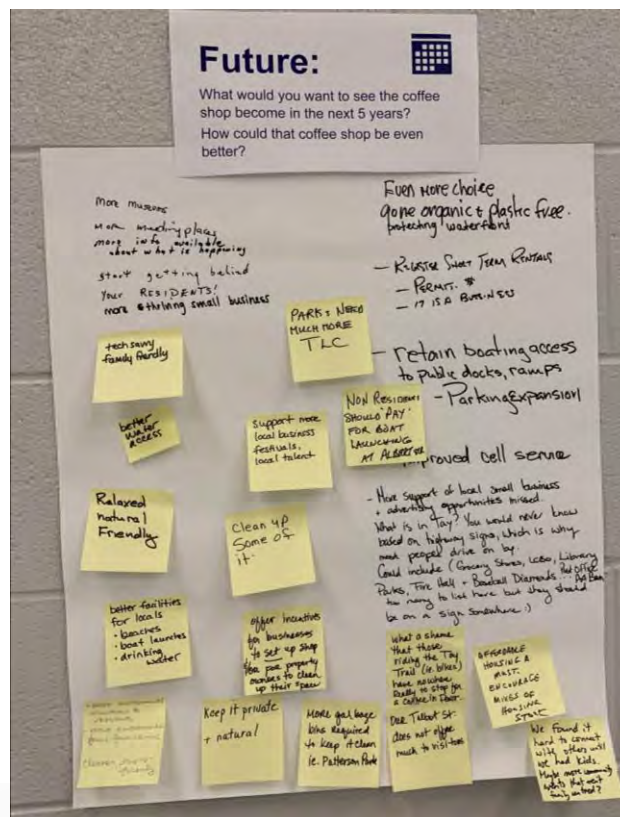 Future:
What would you want to see the coffee
shop become in the next 5 years?
How could that coffee shop be even
better?
More museums
More meeting places
more info available
about what is happening
start getting behind
Your RESIDENTS!
more thriving small business
Even more choice
gone organic + plastic free.
protecting waterfront
- REGISTER SHORT TERM RENTALS
- PERMIT. $
- IT IS A BUSINESS
- retain boating access
to public docks, ramps
- Parking Expansion
improved cell service
- More support of local small business
+ advertising opportunities missed.
What is in Tay? You would never know
based on highway signs, which is why
most people drive on by.
Could include (Grocery Stores, LCBO, Library
Parks, Fire Hall + Baseball Diamonds... Post Office
too many to list here but they should
be on a sign somewhere.)
PARKS NEED
MUCH MORE
TLC
tech savvy
family friendly
NON RESIDENTS
SHOULD 'PAY'
FOR BOAT
LAUNCHING
AT ALBERT
better
water
access
Support more
local business
festivals,
local talent
Relaxed
natural
Friendly
Clean up
Some of
it.
better facilities
for locals
• beaches
• boat launches
• drinking
water
offer incentives
for businesses
to set up shop
for property
to clean
up their
what a shame
that those
riding the Tay
Trail (ie. bikes)
have nowhere
really to stop for
a coffee in
Talbot St.
does not offer
much to visitors
AFFORDABLE
HOUSING A
MUST.
ENCOURAGE
MIXES OF
HOUSING
STOCK
Keep it private
+ natural
More garbage
bins required
to keep it clean
ie. Patterson Park
We found it
hard to connect
with others until
we had kids.
Maybe more community
events that aren't
family centred?